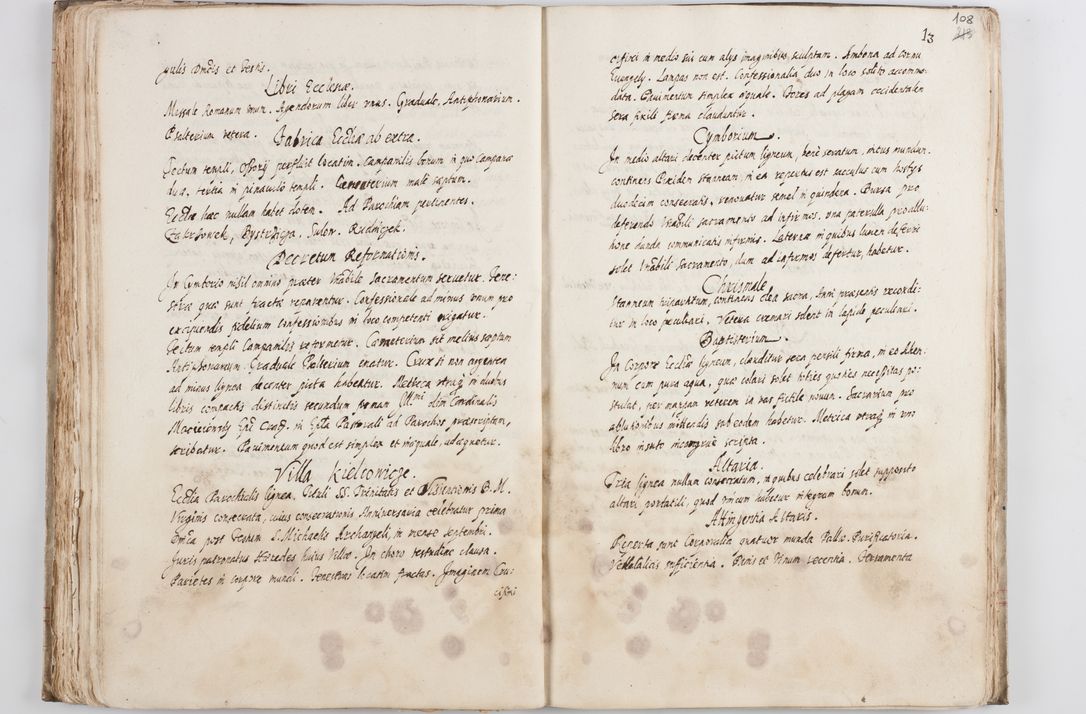 pulis Dnicis et Festis.
Libri Ecclesiæ.
Missale Romanum unum. Agendorum liber unus. Graduale, Antiphonarium.
Psalterium vetera. Fabrica Ecclæ ab extra.
Tectum templi, perfluit locatim. Campanilis bonum in quo campanæ
duæ, tertia in pinaculo templi. Cæmeterium male septum.
Ecclia hæc nullam habet dotem. Ad Parochiam pertinentes.
Zakrzowek, Bystrzyca, Sulow. Rudniczek.
Decretum Reformationis.
In Cymborio nihil omnino præter Vnabile Sacramentum servetur. Fene:
stræ quæ sunt fractæ reparentur. Confessionale ad minus unum pro
excipiendis fidelium confessionibus in loco competenti erigatur.
Tectum templi Campanilis reformetur. Cæmeterium sit melius septum
Antiphonarium. Graduale Psalterium ematur. Crux si non argentea
ad minus lignea decenter picta habeatur. Metrica utraq in duobus
libris compactis distinctis secundum formam Illmi olim Cardinalis
Macieiowsky Epi Crac. in Epla Pastorali ad Parochos præscriptam,
scribatur. Pavimentum quod est simplex et inæquale, adæquetur.
Villa Kielczowicze.
Ecclia Parochialis lignea, tituli SS. Trinitatis et B. M.
Virginis consecrata, cuius consecrationis Anniversaria celebratur prima
Dnica post Festum S. Michaelis Archangeli, in mense Septembri.
Juris patronatus Hæredes huius Villæ. In choro testudine clausa.
Parietes in corpore mundi. Fenestras locatim fractas. Imaginem Cru:
cifixi
108
13
cifixi in medio sui cum alys imaginibus sculptam. Ambona ad cornu
Euangely. Lampas non est. Confessionalia duo in loco solito accommo:
data. Pavimentum simplex æquale. Fores ad plagam occidentalem
sera fixili firma clauduntur.
Cymborium.
In medio altari decenter pictum ligneum, bene seratum, intus mundum.
continens Pixidem stanneam, in ea repertus est sacculus cum hostys
duodecim consecratis, renovatur semel in quindena. Bursa pro
deferendo Vnabili sacramento ad infirmos, una paterella pro ablu:
tione danda communicatis infirmis. Laternæ in quibus lumen deferri
solet Vnabili Sacramento, dum ad infirmos defertur, habetur.
Chrismale
Stanneum tripartitum, continens olea sacra, Anni præsentis recondi:
tur in loco peculiari. Vetera cremari solent in lapide peculiari.
Baptisterium.
In Corpore Ecclæ ligneum, clauditur sera pensili firma, in eo Ahen:
num cum pura aqua, quæ colari solet toties quoties necessitas po:
stulat, per mappam veterem in vas fictile novum. Sacrarium pro
ablutionibus mittendis sub eodem habetur. Metrica utraq in uno
libro insuto incongrue scripta.
Altaria.
Tria lignea nullum consecratum, in quibus celebrari solet supposito
altari portatili, quod unicum habetur integrum bonum.
Attinentia Altaris.
Reperta sunt Corporalia quatuor munda Pallæ. Purificatoria.
Vellatalias sufficientia. Panis et Vinum recentia. Ornamenta